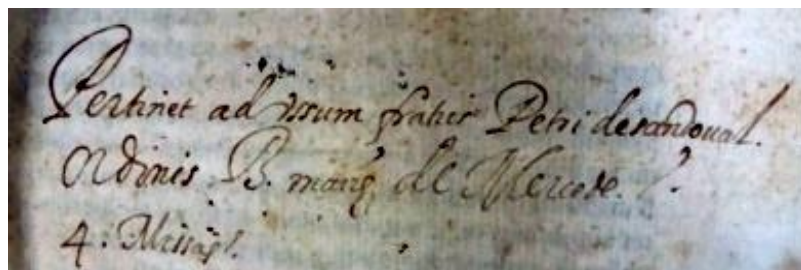 Pertinet ad Vsum fratris Petri desandoual.
Ordinis B. mariȩ de Mercede.
4: Missas